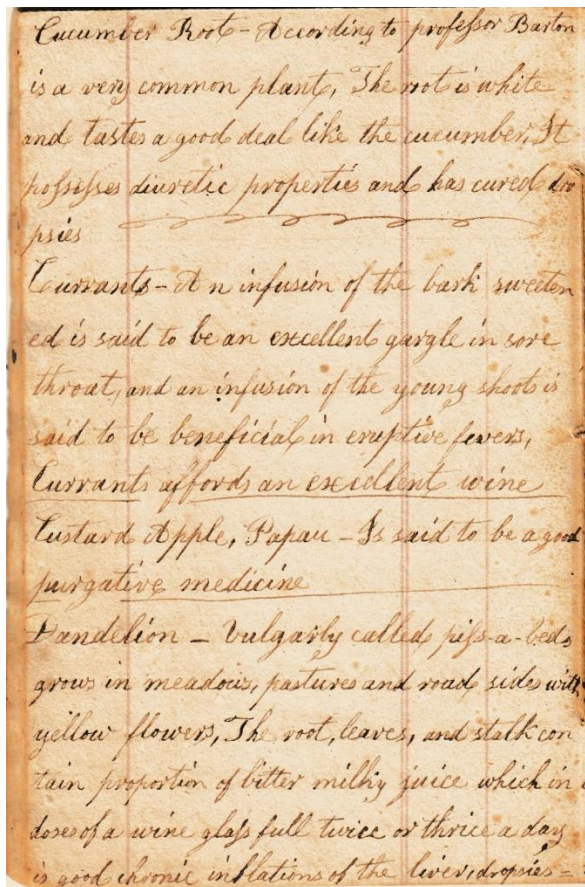 Cucumber Root - According to professor Barton
is a very common plant, The root is white
and tastes a good deal like the cucumber, It
possisses diuretic properties and has cured dro
psies
Currants - An infusion of the bark sweeten
ed is said to be an excellent gargle in sore
throat, and an infusion of the young shoots is
said to be beneficial in eruptive fevers,
Currants affords an excellent wine
Custard Apple, Papau - Is said to be a good
purgative medicine
Dandelion - Vulgarly called piss-a-beds
grows in meadows, pastures and road sides with
yellow flowers, The root, leaves, and stalk con
tain proportion of bitter milky juice which in
doses of a wine glass full twice or thrice a day
is good chronic inflations of the liver, dropsies =